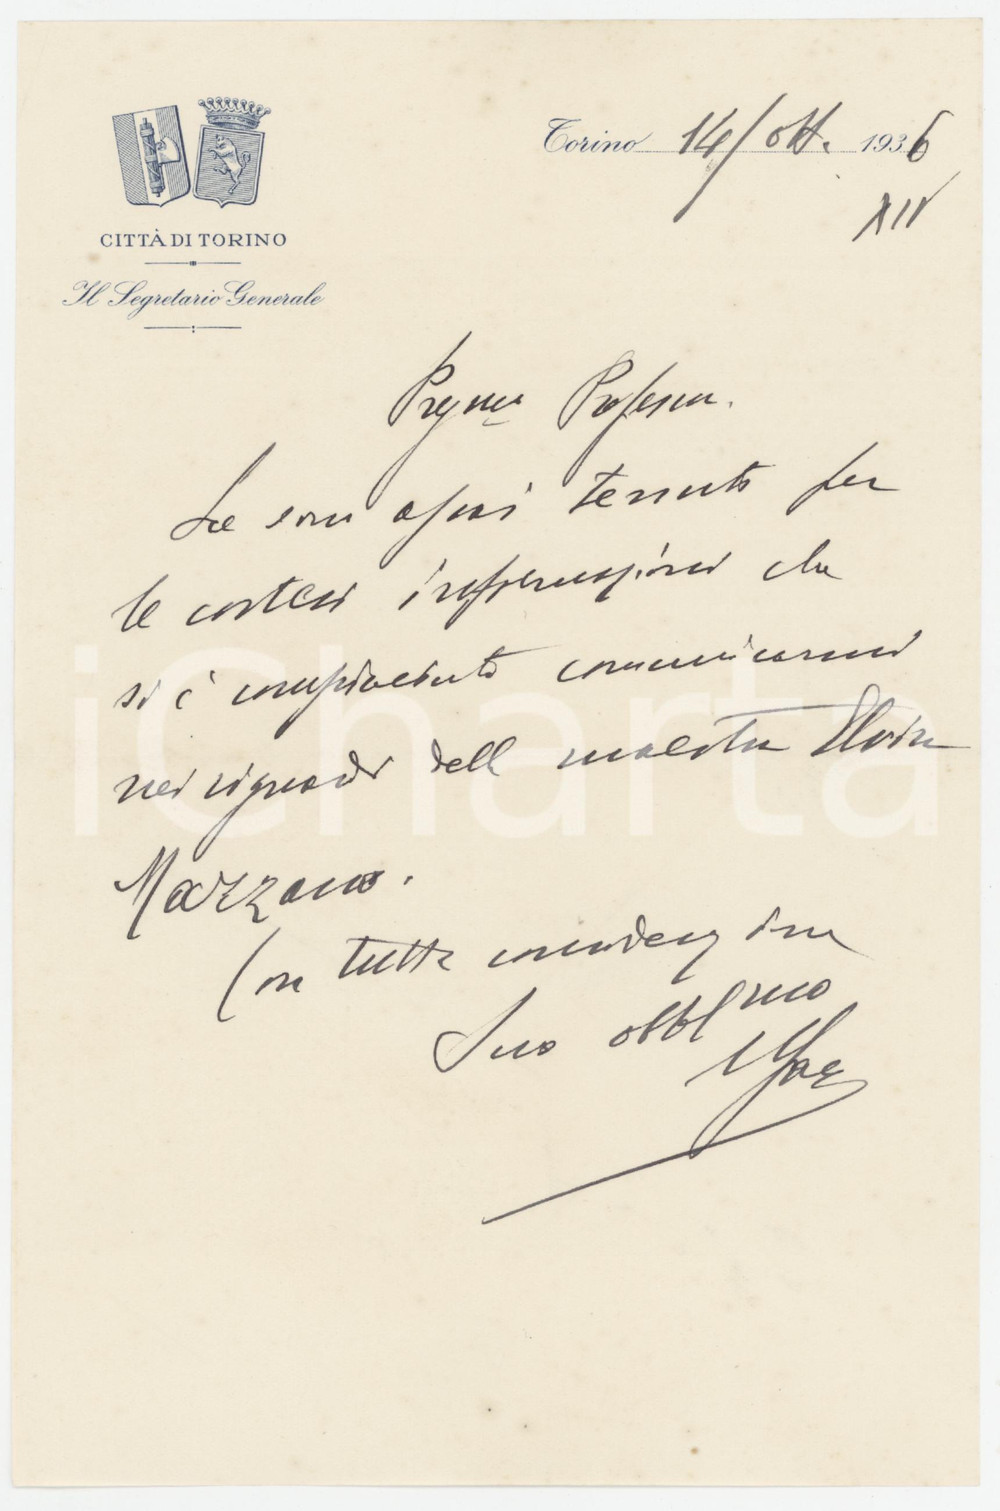 Torino 14/Ott. 1936
XIV
CITTÀ DI TORINO
Il Segretario Generale
Preg.mo Professore.
Le sono assai tenuto per
le cortesi informazioni che
si è compiaciuto comunicarmi
nei riguardi della maestra Elvira
Mazzano.
Con tutta considerazione
Suo obbl.mo
iCharta